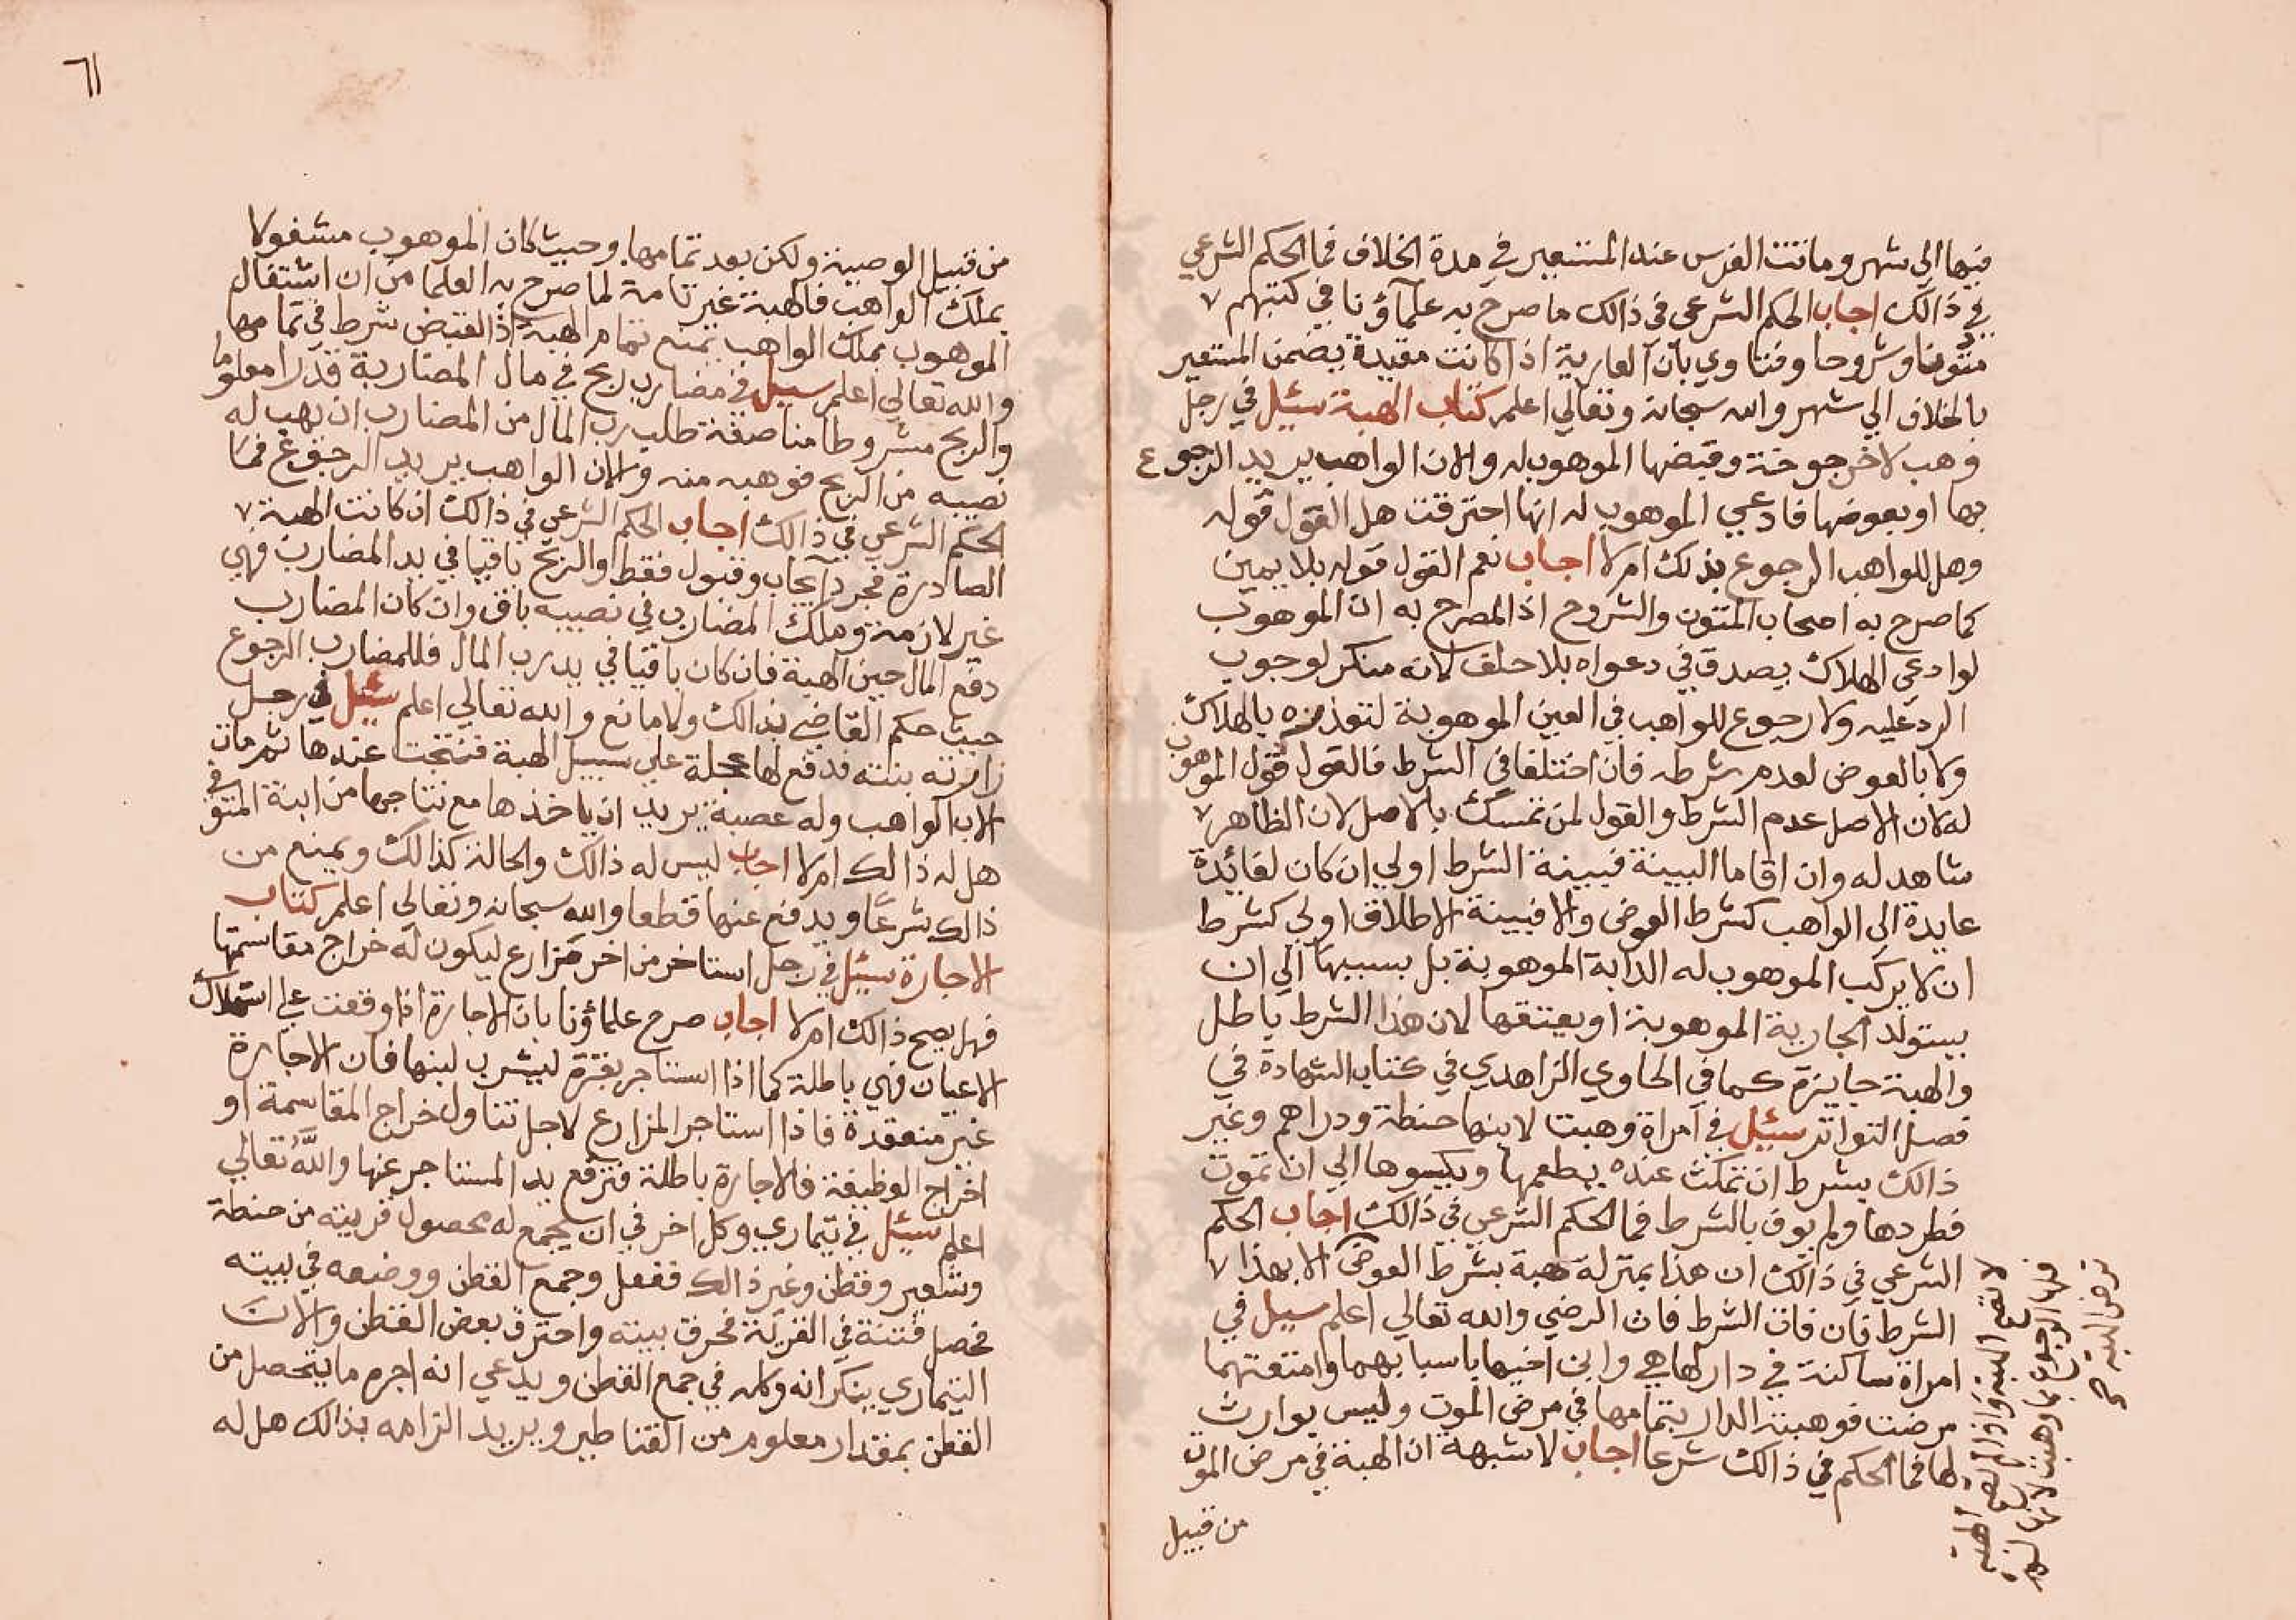 فيها الي شهر وماتت الفرس عند المستعير في مدة الخلاف فما الحكم الشرعي
في ذالك اجاب الحكم الشرعي في ذالك ما صرح به علمآؤنا في كتبهم
متونا وشروحا وفتاوي بأن العارية اذا كانت مقيدة يضمن المستعير
بالخلاف الي شهر والله سبحانه وتعالي اعلم كتاب الهبة سئل في رجل
وهب لاخر جوخة وقبضها الموهوب له والان الواهب يريد الرجوع
بها او بعوضها فادعي الموهوب له انها احترقت هل القول قوله
وهل للواهب الرجوع بذلك ام لا اجاب نعم القول قوله بلا يمين
كما صرح به اصحاب المتون والشروح اذ المصرح به ان الموهوب
لو ادعي الهلاك يصدق في دعواه بلا حلف لانه منكر لوجوب
الرد عليه ولا رجوع للواهب في العين الموهوبة لتعذره بالهلاك
ولا بالعوض لعدم شرطه فان اختلفا في الشرط فالقول قول الموهوب
له لان الاصل عدم الشرط والقول لمن تمسك بالاصل لان الظاهر
شاهد له وان اقاما البينة فبينة الشرط اولي ان كان لفائدة
عايدة الي الواهب كشرط العوض والا فبينة الاطلاق اولي كشرط
ان لا يركب الموهوب له الدابة الموهوبة بل يسيبها الي ان
يستولد الجارية الموهوبة او يعتقها لان هذا الشرط باطل
والهبة جايزة كما في الحاوي الزاهدي في كتاب الشهادة في
فصل التواتر سئيل في امراة وهبت لابنها حنطة ودراهم وغير
ذالك بشرط ان تمكث عنده يطعمها ويكسوها الي ان تموت
فطردها ولم يوف بالشرط فما الحكم الشرعي في ذالك اجاب الحكم
الشرعي في ذالك ان هذا بمنزلة هبة بشرط العوض الا بهذا
الشرط فان فات الشرط فات الرضي والله تعالي اعلم سيل في
امراة ساكنة في دار لها هي وابن اخيها باسبابهما وامتعتهما
مرضت فوهبته الدار بتمامها في مرض الموت وليس بوارث
لها فما الحكم في ذالك شرعا اجاب لا شبهة ان الهبة في مرض الموت
من قبيل
٦١
من قبيل الوصية ولكن بعد تمامها وحيث كان الموهوب مشغولا
بملك الواهب فالهبة غير تامة لما صرح به العلما من ان اشتغال
الموهوب بملك الواهب يمنع تمام الهبة اذ القبض شرط في تمامها
والله تعالي اعلم سيل في مضارب ربح في مال المضاربة قدرا معلوما
والربح مشروطا مناصفة طلب رب المال من المضارب ان يهب له
نصيبه من الربح فوهبه منه والان الواهب يريد الرجوع فما
الحكم الشرعي في ذالك اجاب الحكم الشرعي في ذالك ان كانت الهبة
الصادرة مجرد ايجاب وقبول فقط والربح باقيا في يد المضارب فهي
غير لازمة وملك المضارب في نصيبه باق وان كان المضارب
دفع المال حين الهبة فان كان باقيا في يد رب المال فللمضارب الرجوع
حيث حكم القاضي بذالك ولا مانع والله تعالي اعلم سئيل في رجل
زارته بنته فدفع لها عجلة علي سبيل الهبة فنتجت عندها ثم مات
الاب الواهب وله عصبة يريد ان ياخذها مع نتاجها من ابنة المتوفي
هل له ذالك ام لا اجاب ليس له ذالك والحالة كذالك ويمنع من
ذالك شرعا ويدفع عنها قطعا والله سبحانه وتعالي اعلم كتاب
الاجارة سيئل في رجل استاخر من اخر مزارع ليكون له خراج مقاسمتها
فهل يصح ذالك ام لا اجاب صرح علماؤنا بان الاجارة اذا وقعت علي استهلاك
الاعيان فهي باطلة كما اذا استاجر بقرة ليشرب لبنها فان الاجارة
غير منعقدة فاذا استاجر المزارع لاجل تناول خراج المقاسمة او
اخراج الوظيفة فالاجارة باطلة فترفع يد المستاجر عنها والله تعالي
اعلم سيئل في تيماري وكل اخر في ان يجمع له محصول قريته من حنطة
وشعير وقطن وغير ذالك ففعل وجمع القطن ووضعه في بيته
فحصل فتنة في القرية فحرق بيته واحترق بعض القطن والان
التيماري ينكر انه وكله في جمع القطن ويدعي انه اجره ما يتحصل من
القطن بمقدار معلوم من القناطير ويريد الزامه بذالك هل له